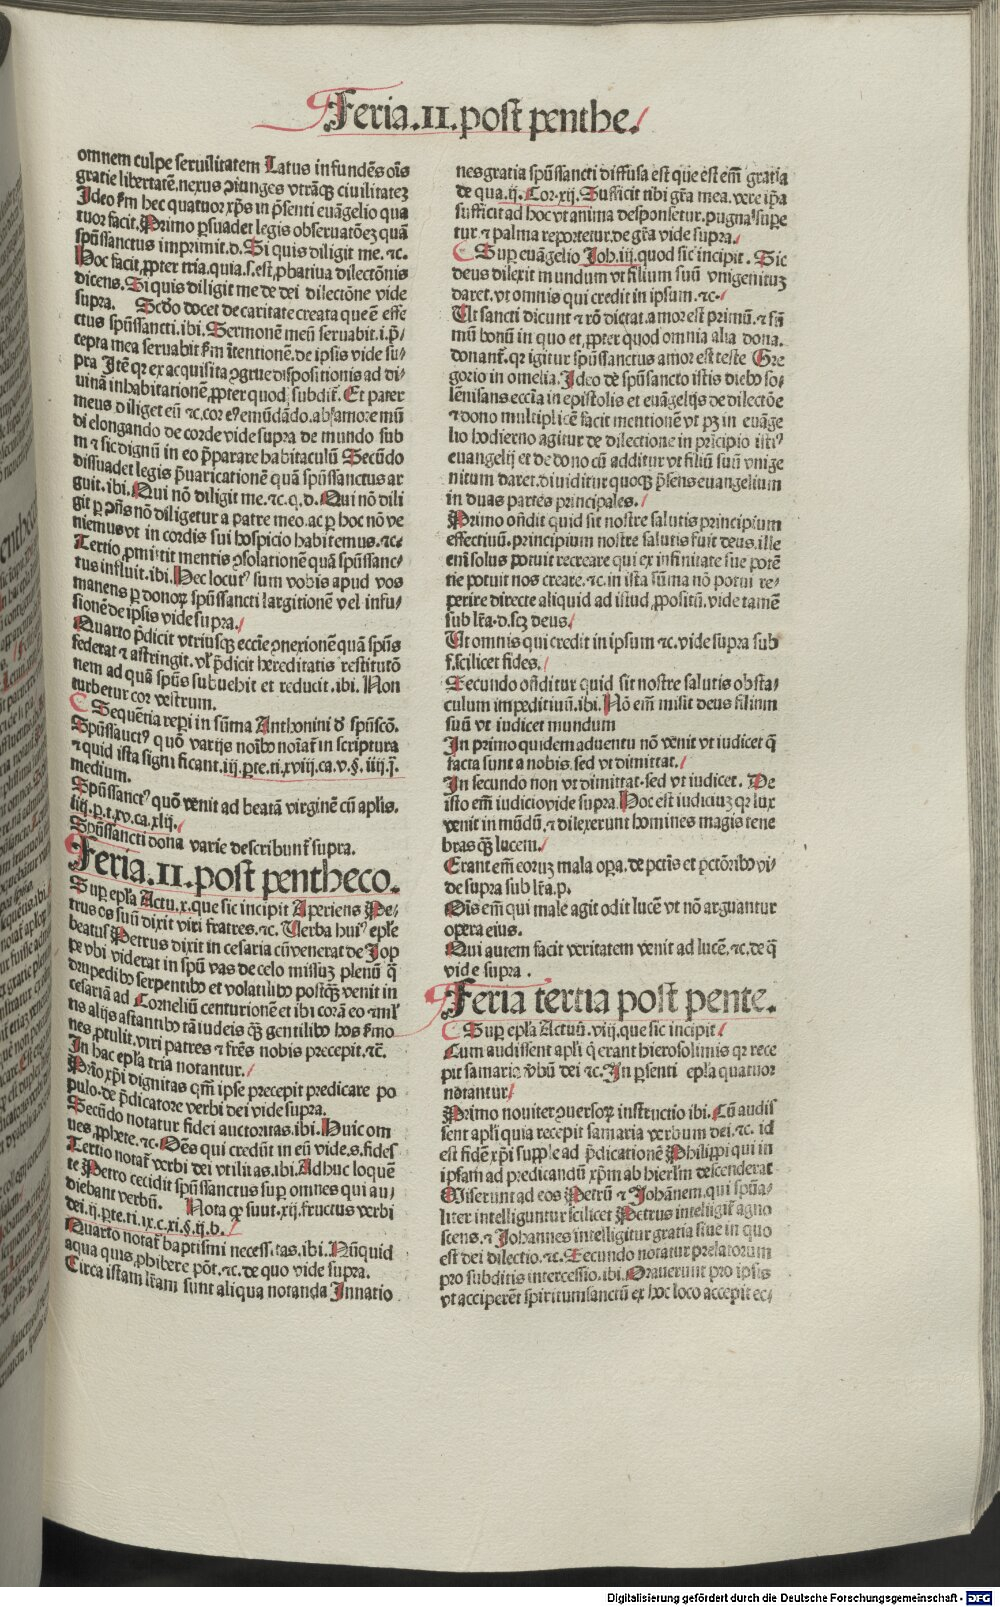 Feria.II.post penthe.
omnem culpe seruilitatem Latus infundēs oīs
gratie libertatē, nexus ꝯiunges vtrāqꝫ ciuilitateꝫ
Ideo fm hec quatuor xp̄s in p̄senti euāgelio qua
tuor facit. Primo ꝑsuadet legis obseruatōeꝫ quā
spūssanctus imprimit.d. Si quis diligit me.⁊c.
Hoc facit ꝓpter tria.quia.s.est ꝓbatiua dilectōnis
dicens. Si quis diligit me de dei dilectōne vide
supra. Scd̄o docet de caritate creata que ē effe
ctus spūssancti.ibi. Sermonē meū seruabit.i.p̄-
cepta mea seruabit fm ītentionē.de ipsis vide su-
pra Itē qꝛ ex acquisita ꝯgrue dispositionis ad di-
uinā inhabitationē ꝓpter quod subdit. Et pater
meus diliget eū ⁊c.cor eꝰ emūdādo.ab amore mū
di elongando de corde vide supra de mundo sub
m ⁊ sic dignū in eo p̄parare habitaculū Secūdo
dissuadet legis p̄uaricationē quā spūssanctus ar
guit.ibi. Qui nō diligit me.⁊c.q.d. Qui nō dili
git ꝑ ꝯn̄s nō diligetur a patre meo.ac ꝑ hoc nō ve
niemus vt in cordis sui hospicio habitemus.⁊c.
Tertio ꝓmittit mentis ꝯsolationē quā spūssanc-
tus influit.ibi. Hec locutꝰ sum vobis apud vos
manens ꝑ donoꝝ spūssancti largitionē vel infu-
sionē de ipsis vide supra.
Quarto p̄dicit vtriusqꝫ eccīe ꝯnexionē quā spūs
federat ⁊ astringit.vl' p̄dicit hereditatis restitutō
nem ad quā spūs subuehit et reducit.ibi. Non
turbetur cor vestrum.
Sequētia reperi in sūma Anthonini đ spūscō.
Spūssanctꝰ quō varijs noībꝰ notat̄ in scriptura
⁊ quid ista significant.iij.ꝑte.ti.xviij.ca.v.§.iiij.
medium.
Spūssanctꝰ quō venit ad beatā virginē cū apl̄is.
iiij.p.t.xv.ca.xlij.
Spūssancti dona varie describunt̄ supra.
Feria.II.post pentheco.
Suꝑ epl̄a Actu.x.que sic incipit Aperiens Pe-
trus os suū dixit viri fratres.⁊c. Verba huiꝰ epl̄e
beatus Petrus dixit in cesaria cū venerat de Jop
pe vbi viderat in spū vas de celo missuꝫ plenū q̄
drupedibꝰ serpentibꝰ et volatilibꝰ postqꝫ venit in
cesariā ad Corneliū centurionē et ibi corā eo ⁊ ml'
tis alijs astantibꝰ tā iudeis qꝫ gentilibꝰ hos fmo
nes ꝓtulit.viri patres ⁊ frēs nobis precepit.⁊c.
In hac epl̄a tria notantur.
Prīo xp̄i dignitas qm̄ ipse precepit predicare po
pulo.de p̄dicatore verbi dei vide supra.
Secūdo notatur fidei auctoritas.ibi. Huic om
nes ꝓphete.⁊c. Oēs qui credūt in eū vide.s.fides
Tertio notat̄ verbi dei vtilitas.ibi. Adhuc loquē
te Petro cecidit spūssanctus suꝑ omnes qui au-
diebant verbū. Nota qꝛ sunt.xij.fructus verbi
dei.ij.ꝑte.ti.ix.c.xi.§.ij.b.
Quarto notat̄ baptismi necessitas.ibi. Nūquid
aqua quis ꝓhibere pōt.⁊c.de quo vide supra.
Circa istam lr̄am sunt aliqua notanda Innatio
nes gratia spūssancti diffusa est que est em̄ gratia
de qua.ij. Cor.xij. Sufficit tibi gr̄a mea.vere ip̄a
sufficit ad hoc vt anima desponsetur.pugna suꝑe
tur.⁊ palma reportetur.de gr̄a vide supra.
Suꝑ euāgelio Joh.iij.quod sic incipit. Sic
deus dilexit mundum vt filium suū vnigenituꝫ
daret.vt omnis qui credit in ipsum.⁊c.
Ut sancti dicunt ⁊ rō dictat.amor est primū.⁊ sū
mū bonū in quo et ꝓpter quod omnia alia dona
donant̄.qꝛ igitur spūssanctus amor est teste Gre
gorio in omelia. Ideo de spūsancto istis diebꝰ so-
lēnisans eccīa in epistolis et euāgelijs de dilectōe
⁊ dono multiplicē facit mentionē vt pꝫ in euāge
lio hodierno agitur de dilectione in p̄ncipio istiꝰ
euangelij et de dono cū additur vt filiū suū vnige
nitum daret.diuiditur quoqꝫ p̄sens euangelium
in duas partes principales.
Primo oñdit quid sit nostre salutis principium
effectiuū.principium nostre salutis fuit deus.ille
em̄ solus potuit recreare qui ex infinitate sue potē
tie potuit nos creare.⁊c.in ista sūma nō potui re-
perire directe aliquid ad istud ꝓpositū.vide tamē
sub lr̄a.d.scꝫ deus.
Ut omnis qui credit in ipsum ⁊c.vide supra sub
f.scilicet fides.
Secundo oñditur quid sit nostre salutis obsta-
culum impeditiuū.ibi. Nō em̄ misit deus filium
suū vt iudicet mundum
In primo quidem aduentu nō venit vt iudicet q̄
facta sunt a nobis.sed vt dimittat.
In secundo non vt dimittat.sed vt iudicet. De
isto em̄ iudicio vide supra. Hoc est iudiciuꝫ qꝛ lux
venit in mūdū.⁊ dilexerunt homines magis tene
bras qꝫ lucem.
Erant em̄ eoruꝫ mala oꝑa.de pctīs et pctōribꝰ vi-
de supra sub lr̄a.p.
Oīs em̄ qui male agit odit lucē vt nō arguantur
opera eius.
Qui autem facit veritatem venit ad lucē.⁊c.de q̄
vide supra.
Feria tertia post pente.
Suꝑ epl̄a Actuū.viij.que sic incipit
Cum audissent apl̄i q̄ erant hierosolimis qꝛ rece
pit samaria v̄bū dei ⁊c. In p̄senti epl̄a quatuor
notantur
Primo nouiter ꝯuersoꝝ instructio ibi. Cū audis
sent apl̄i quia recepit samaria verbum dei.⁊c. id
est fidē xp̄i supple ad p̄dicationē Philippi qui in
ipsam ad predicandū xp̄m ab hierl'm descenderat
Miserunt ad eos Petrū ⁊ Johānem.qui spūa-
liter intelliguntur scilicet Petrus intelligit̄ agno
scens.⁊ Johannes intelligitur gratia siue in quo
est dei dilectio.⁊c. Secundo notatur prelatorum
pro subditis intercessio.ibi. Orauerunt pro ipsis
vt acciperēt spiritumsanctū ex hoc loco accepit ec-
Digitalisierung gefördert durch die Deutsche Forschungsgemeinschaft - DFG